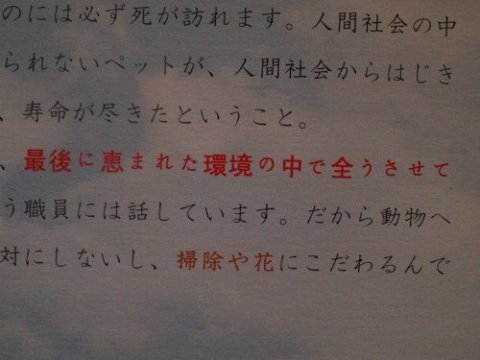 のには必ず死が訪れます。人間社会の中
られないペットが、人間社会からはじき
、寿命が尽きたということ。
、最後に恵まれた環境の中で全うさせて
う職員には話しています。だから動物へ
対にしないし、掃除や花にこだわるんで